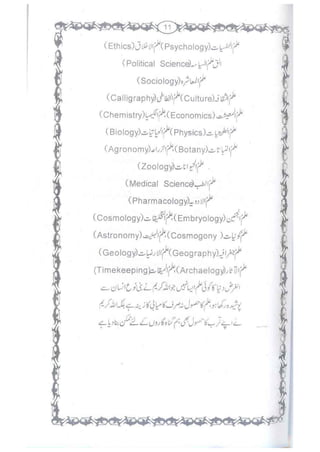 11
علم النفسیات (Psychology) علم الاخلاق (Ethics)
علم السیاسیات (Political Science)
علم المعاشرہ (Sociology)
علم الثقافہ (Culture) علم الخطاطی (Calligraphy)
علم المعیشت (Economics) علم الکیمیا (Chemistry)
علم الطبیعیات (Physics) علم الحیاتیات (Biology)
علم النباتات (Botany) علم الزراعہ (Agronomy)
علم الحیوانات (Zoology)
علم الطب (Medical Science)
علم الادویہ (Pharmacology)
علم الجنین (Embryology) علم التخلیقات (Cosmology)
علم کونیات (Cosmogony) علم الہیئت (Astronomy)
علم جغرافیہ (Geography) علم الارضیات (Geology)
علم الآثار (Archaelogy) علم المیقات (Timekeeping)
الغرض دنیا کا کوئی علم ایسا نہیں جو اللہ کریم نے بنی نوع انسان سے
پوشیدہ رکھا ہو، علم کا حصول نہ صرف کامیابی کا زینہ ہے بلکہ اللہ کریم
نے اپنے قرب کا حصول بھی ہم گناہ گاروں کے لئے ممکن بنا دیا ہے